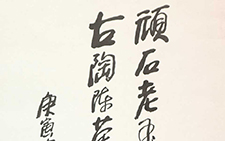 顽石老
古陶陈
庚寅